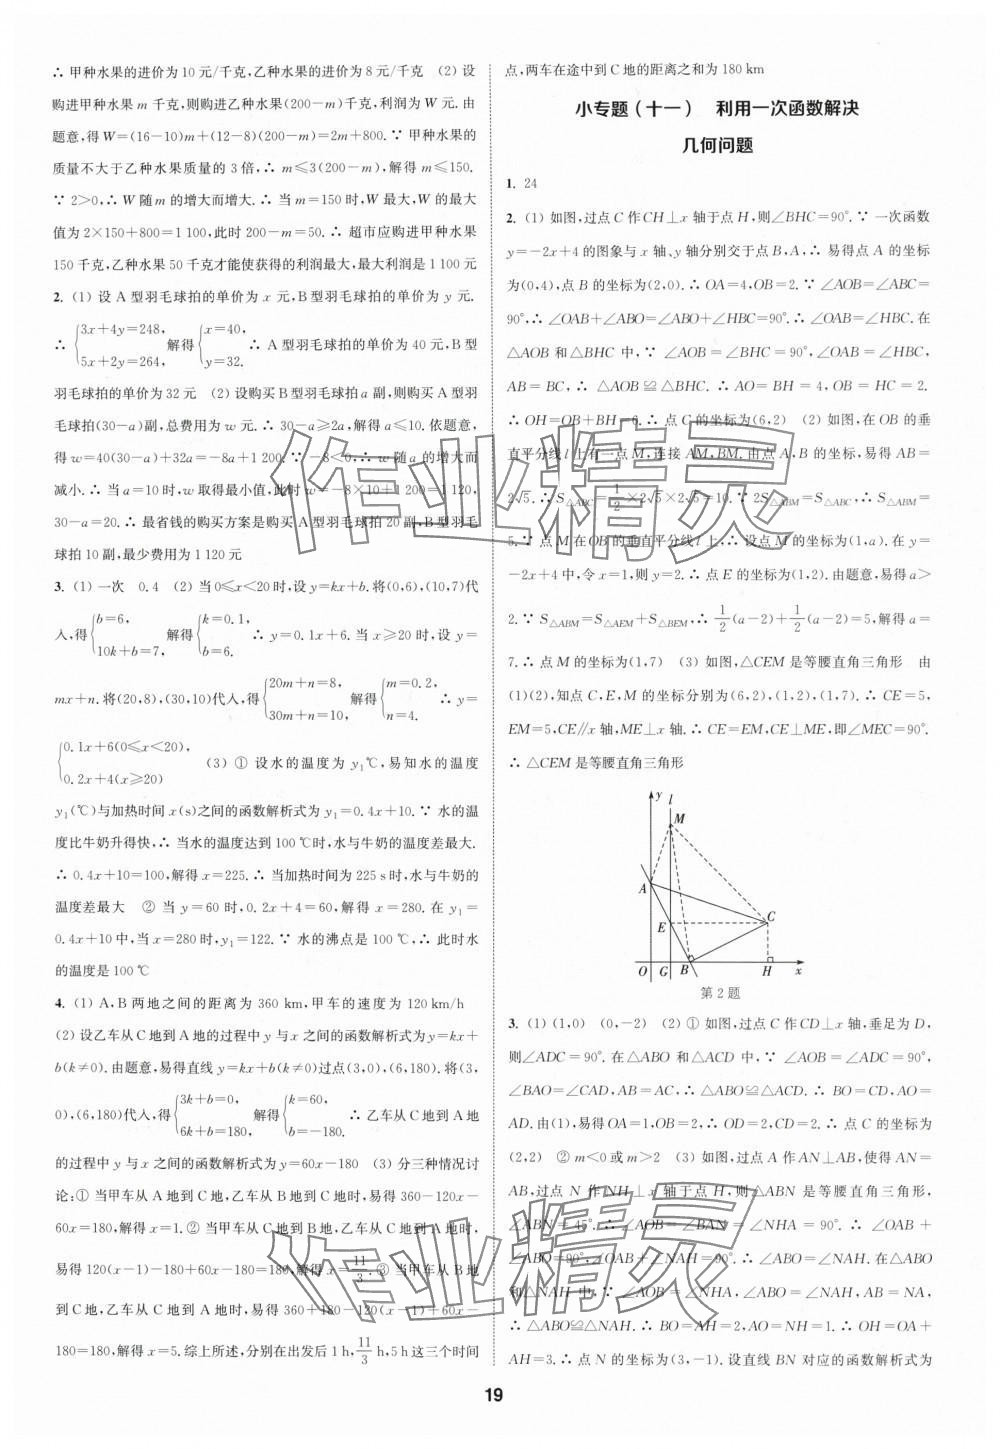 ∴ 甲种水果的进价为 10 元/千克,乙种水果的进价为 8 元/千克 (2) 设
购进甲种水果 m 千克,则购进乙种水果(200-m)千克,利润为 W 元.由
题意,得 W=(16-10)m+(12-8)(200-m)=2m+800.∵ 甲种水果的
质量不大于乙种水果质量的 3 倍,∴ m≤3(200-m),解得 m≤150.
∵ 2>0,∴ W 随 m 的增大而增大.∴ 当 m=150 时,W 最大,W 的最大
值为 2×150+800=1 100,此时 200-m=50.∴ 超市应购进甲种水果
150 千克,乙种水果 50 千克才能使获得的利润最大,最大利润是 1 100 元
2. (1) 设 A 型羽毛球拍的单价为 x 元,B 型羽毛球拍的单价为 y 元.
∴ {3x+4y=248, 5x+2y=264, 解得 {x=40, y=32. ∴ A 型羽毛球拍的单价为 40 元,B 型
羽毛球拍的单价为 32 元 (2) 设购买 B 型羽毛球拍 a 副,则购买 A 型羽
毛球拍(30-a)副,总费用为 w 元.∴ 30-a≥2a,解得 a≤10.依题意,
得 w=40(30-a)+32a=-8a+1 200.∵ -8<0,∴ w 随 a 的增大而
减小.∴ 当 a=10 时,w 取得最小值,此时 w=-8×10+1 200=1 120,
30-a=20.∴ 最省钱的购买方案是购买 A 型羽毛球拍 20 副,B 型羽毛
球拍 10 副,最少费用为 1 120 元
3. (1) 一次 0.4 (2) 当 0≤x<20 时,设 y=kx+b.将(0,6),(10,7)代
入,得 {b=6, 10k+b=7, 解得 {k=0.1, b=6. ∴ y=0.1x+6.当 x≥20 时,设 y=
mx+n.将(20,8),(30,10)代入,得 {20m+n=8, 30m+n=10, 解得 {m=0.2, n=4. ∴ y=
{0.1x+6(0≤x<20), 0.2x+4(x≥20) (3) ① 设水的温度为 y₁℃,易知水的温度
y₁(℃)与加热时间 x(s)之间的函数解析式为 y₁=0.4x+10.∵ 水的温
度比牛奶升得快,∴ 当水的温度达到 100 ℃时,水与牛奶的温度差最大.
∴ 0.4x+10=100,解得 x=225.∴ 当加热时间为 225 s 时,水与牛奶的
温度差最大 ② 当 y=60 时,0.2x+4=60,解得 x=280.在 y₁=
0.4x+10 中,当 x=280 时,y₁=122.∵ 水的沸点是 100 ℃,∴ 此时水
的温度是 100 ℃
4. (1) A,B 两地之间的距离为 360 km,甲车的速度为 120 km/h
(2) 设乙车从 C 地到 A 地的过程中 y 与 x 之间的函数解析式为 y=kx+
b(k≠0).由题意,易得直线 y=kx+b(k≠0)过点(3,0),(6,180).将(3,
0),(6,180)代入,得 {3k+b=0, 6k+b=180, 解得 {k=60, b=-180. ∴ 乙车从 C 地到 A 地
的过程中 y 与 x 之间的函数解析式为 y=60x-180 (3) 分三种情况讨
论:① 当甲车从 A 地到 C 地,乙车从 B 地到 C 地时,易得 360-120x-
60x=180,解得 x=1.② 当甲车从 C 地到 B 地,乙车从 C 地到 A 地时,
易得 120(x-1)-180+60x-180=180,解得 x=11/3.③ 当甲车从 B 地
到 C 地,乙车从 C 地到 A 地时,易得 360+180-120(x-1)+60x-
180=180,解得 x=5.综上所述,分别在出发后 1 h,11/3 h,5 h 这三个时间
点,两车在途中到 C 地的距离之和为 180 km
小专题(十一) 利用一次函数解决
几何问题
1. 24
2. (1) 如图,过点 C 作 CH⊥x 轴于点 H,则∠BHC=90°.∵ 一次函数
y=-2x+4 的图象与 x 轴、y 轴分别交于点 B,A,∴ 易得点 A 的坐标
为(0,4),点 B 的坐标为(2,0).∴ OA=4,OB=2.∵ ∠AOB=∠ABC=
90°,∴ ∠OAB+∠ABO=∠ABO+∠HBC=90°.∴ ∠OAB=∠HBC.在
△AOB 和△BHC 中,∵ ∠AOB=∠BHC=90°,∠OAB=∠HBC,
AB=BC,∴ △AOB≌△BHC.∴ AO=BH=4,OB=HC=2.
∴ OH=OB+BH=6.∴ 点 C 的坐标为(6,2) (2) 如图,在 OB 的垂
直平分线 l 上有一点 M,连接 AM,BM.由点 A,B 的坐标,易得 AB=
2√5.∴ S△ABC=1/2×2√5×2√5=10.∵ 2S△ABM=S△ABC,∴ S△ABM=
5.∵ 点 M 在 OB 的垂直平分线 l 上,∴ 设点 M 的坐标为(1,a).在 y=
-2x+4 中,令 x=1,则 y=2.∴ 点 E 的坐标为(1,2).由题意,易得 a>
2.∵ S△ABM=S△AEM+S△BEM,∴ 1/2(a-2)+1/2(a-2)=5,解得 a=
7.∴ 点 M 的坐标为(1,7) (3) 如图,△CEM 是等腰直角三角形 由
(1)(2),知点 C,E,M 的坐标分别为(6,2),(1,2),(1,7).∴ CE=5,
EM=5,CE∥x 轴,ME⊥x 轴.∴ CE=EM,CE⊥ME,即∠MEC=90°.
∴ △CEM 是等腰直角三角形
y
l
M
A
E
C
O
G
B
H
x
第 2 题
3. (1) (1,0) (0,-2) (2) ① 如图,过点 C 作 CD⊥x 轴,垂足为 D,
则∠ADC=90°.在△ABO 和△ACD 中,∵ ∠AOB=∠ADC=90°,
∠BAO=∠CAD,AB=AC,∴ △ABO≌△ACD.∴ BO=CD,AO=
AD.由(1),易得 OA=1,OB=2,∴ OD=2,CD=2.∴ 点 C 的坐标为
(2,2) ② m<0 或 m>2 (3) 如图,过点 A 作 AN⊥AB,使得 AN=
AB,过点 N 作 NH⊥x 轴于点 H,则△ABN 是等腰直角三角形,
∠ABN=45°.∴ ∠AOB=∠BAN=∠NHA=90°.∴ ∠OAB+
∠ABO=90°,∠OAB+∠NAH=90°.∴ ∠ABO=∠NAH.在△ABO
和△NAH 中,∵ ∠AOB=∠NHA,∠ABO=∠NAH,AB=NA,
∴ △ABO≌△NAH.∴ BO=AH=2,AO=NH=1.∴ OH=OA+
AH=3.∴ 点 N 的坐标为(3,-1).设直线 BN 对应的函数解析式为
19
作业精灵
作业精灵